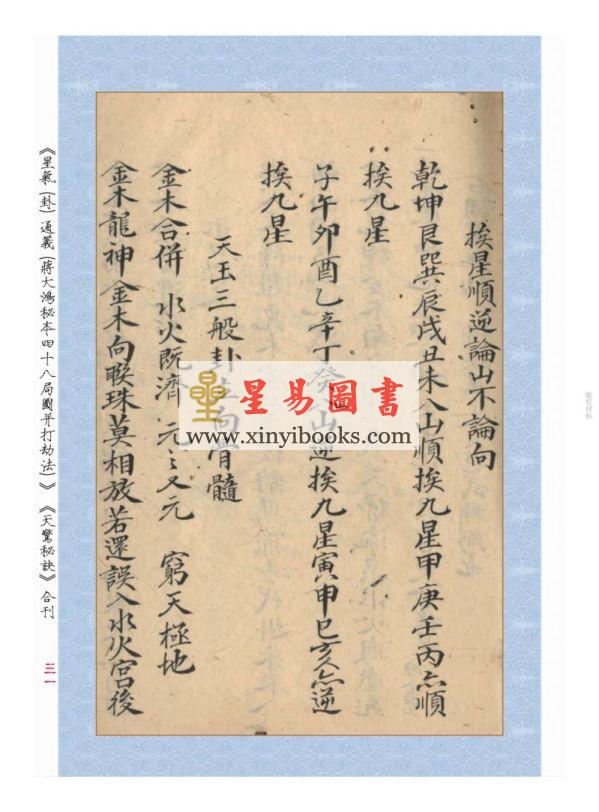 挨星順逆論山不論向
乾坤艮巽辰戌丑未八山順挨九星甲庚壬丙亦順
挨九星
子午卯酉乙辛丁癸八山逆挨九星寅申巳亥亦逆
挨九星
天玉三般卦山向骨髓
金木合併 水火既濟 元之又元 窮天極地
金木龍神金木向聯珠莫相放若還誤入水火宮後
《星氣(卦)通義(蔣大鴻秘本四十八局圖并打劫法)》《天驚秘訣》合刊
三一
版权材料
星易圖書
www.xinyibooks.com